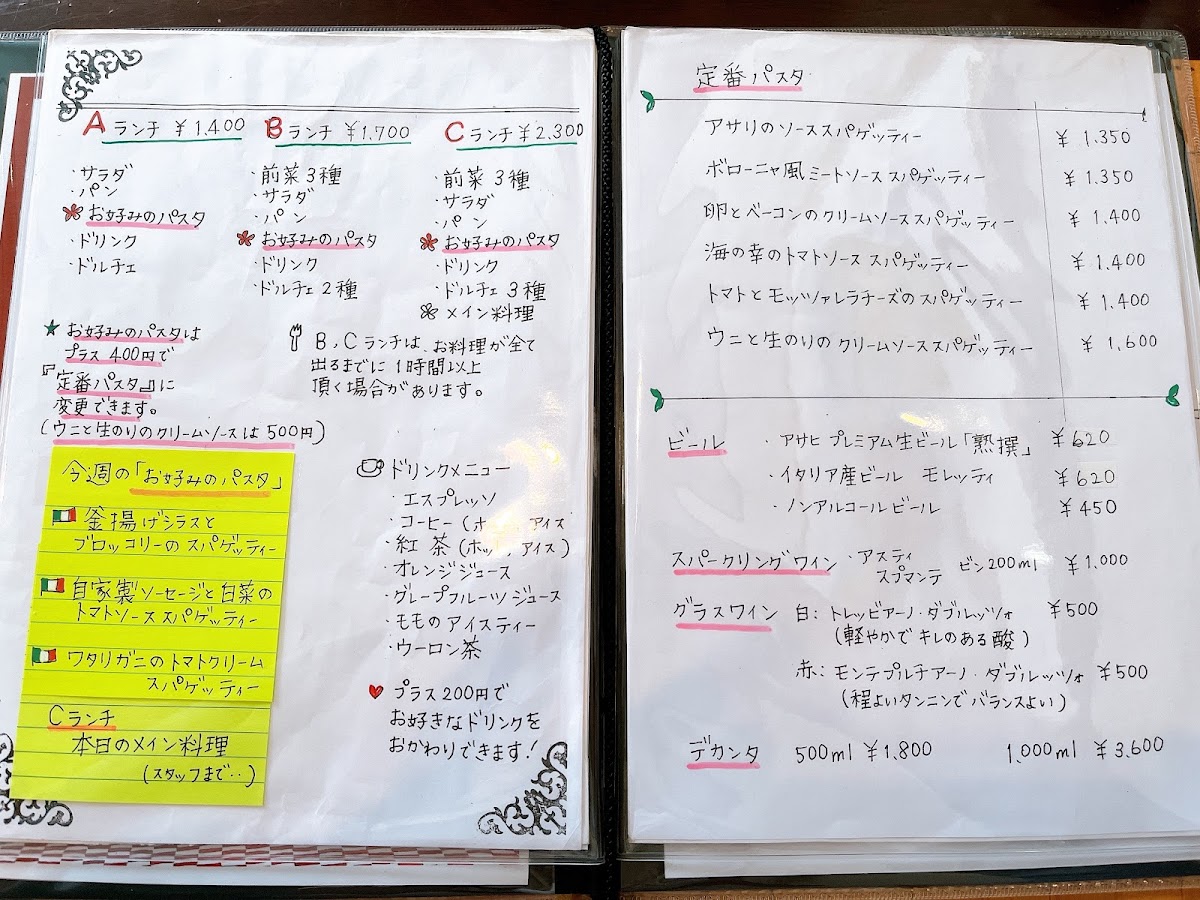 Aランチ ¥1,400
・サラダ
・パン
お好みのパスタ
・ドリンク
・ドルチェ
Bランチ ¥1,700
・前菜3種
・サラダ
・パン
お好みのパスタ
・ドリンク
・ドルチェ2種
Cランチ ¥2,300
・前菜3種
・サラダ
・パン
お好みのパスタ
・ドリンク
・ドルチェ3種
メイン料理
★お好みのパスタは
プラス400円で
『定番パスタ』に
変更できます。
(ウニと生のりのクリームソースは500円)
B,Cランチは、お料理が全て
出るまでに1時間以上
頂く場合があります。
今週の「お好みのパスタ」
釜揚げシラスと
ブロッコリーのスパゲッティー
自家製ソーセージと白菜の
トマトソーススパゲッティー
ワタリガニのトマトクリーム
スパゲッティー
Cランチ
本日のメイン料理
(スタッフまで‥)
ドリンクメニュー
・エスプレッソ
・コーヒー(ホ アイス
・紅茶(ホッ アイス)
・オレンジジュース
・グレープフルーツジュース
・モモのアイスティー
・ウーロン茶
♥プラス200円で
お好きなドリンクを
おかわりできます!
定番パスタ
アサリのソーススパゲッティー ¥1.350
ボローニャ風ミートソーススパゲッティー ¥1.350
卵とベーコンのクリームソーススパゲッティー ¥1.400
海の幸のトマトソーススパゲッティー ¥1.400
トマトとモッツァレラチーズのスパゲッティー ¥1.400
ウニと生のりのクリームソーススパゲッティー ¥1,600
ビール ・アサヒプレミアム生ビール「熟撰」 ¥620
・イタリア産ビール モレッティ ¥620
・ノンアルコールビール ¥450
スパークリングワイン ・アスティ スプマンテ ビン200ml ¥1,000
グラスワイン 白:トレッビアーノ・ダブルッツォ ¥500
(軽やかでキレのある酸)
赤:モンテプルチアーノ・ダブルッツォ ¥500
(程よいタンニンでバランスよい)
デカンタ 500ml ¥1,800 1,000ml ¥3,600